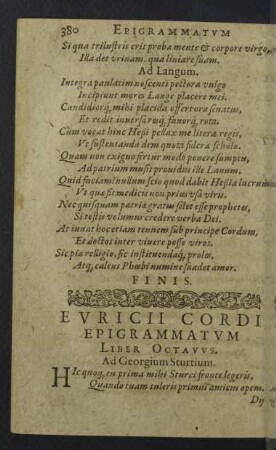 380 EPIGRAMMATVM
Si qua trilustris erit proba mente & corpore virgo,
Illa det vrinam, qua liniare suam.
Ad Langum.
Integra paulatim noscenti pectora vulgo
Incipiunt mores Lange placere mei.
Candidiorq́, mihi placida offertora senatus,
Et redit inuersa ruq́, fauorq́, rota.
Cum vocat hinc Hessi pellax me litera regis,
Vt sustentanda dem quota fulcra schola.
Quam non exiguo fertur modò ponere sumptu,
Ad patrium musis prouidus ille Lanum.
Quid faciam? nullum scio quod dabit Hessia lucrum
Vt qua sit medicis non prius vsa viris.
Nec quisquam patria gratus solet esse prophetes,
Si testis volumus credere verba Dei.
At iuuat hoc etiam tenuem sub principe Cordum,
Et doctos inter viuere posse viros.
Sic pia religio, sic instituendaq́, proles,
Atq́, calens Phœbi numine suadet amor.
FINIS.
EVRICII CORDI
EPIGRAMMATVM
LIBER OCTAVVS.
Ad Georgium Sturtium.
HIc quoq́, en prima mihi Sturci fronte legeris,
Quando tuam tuleris primus amicus opem.
Dij